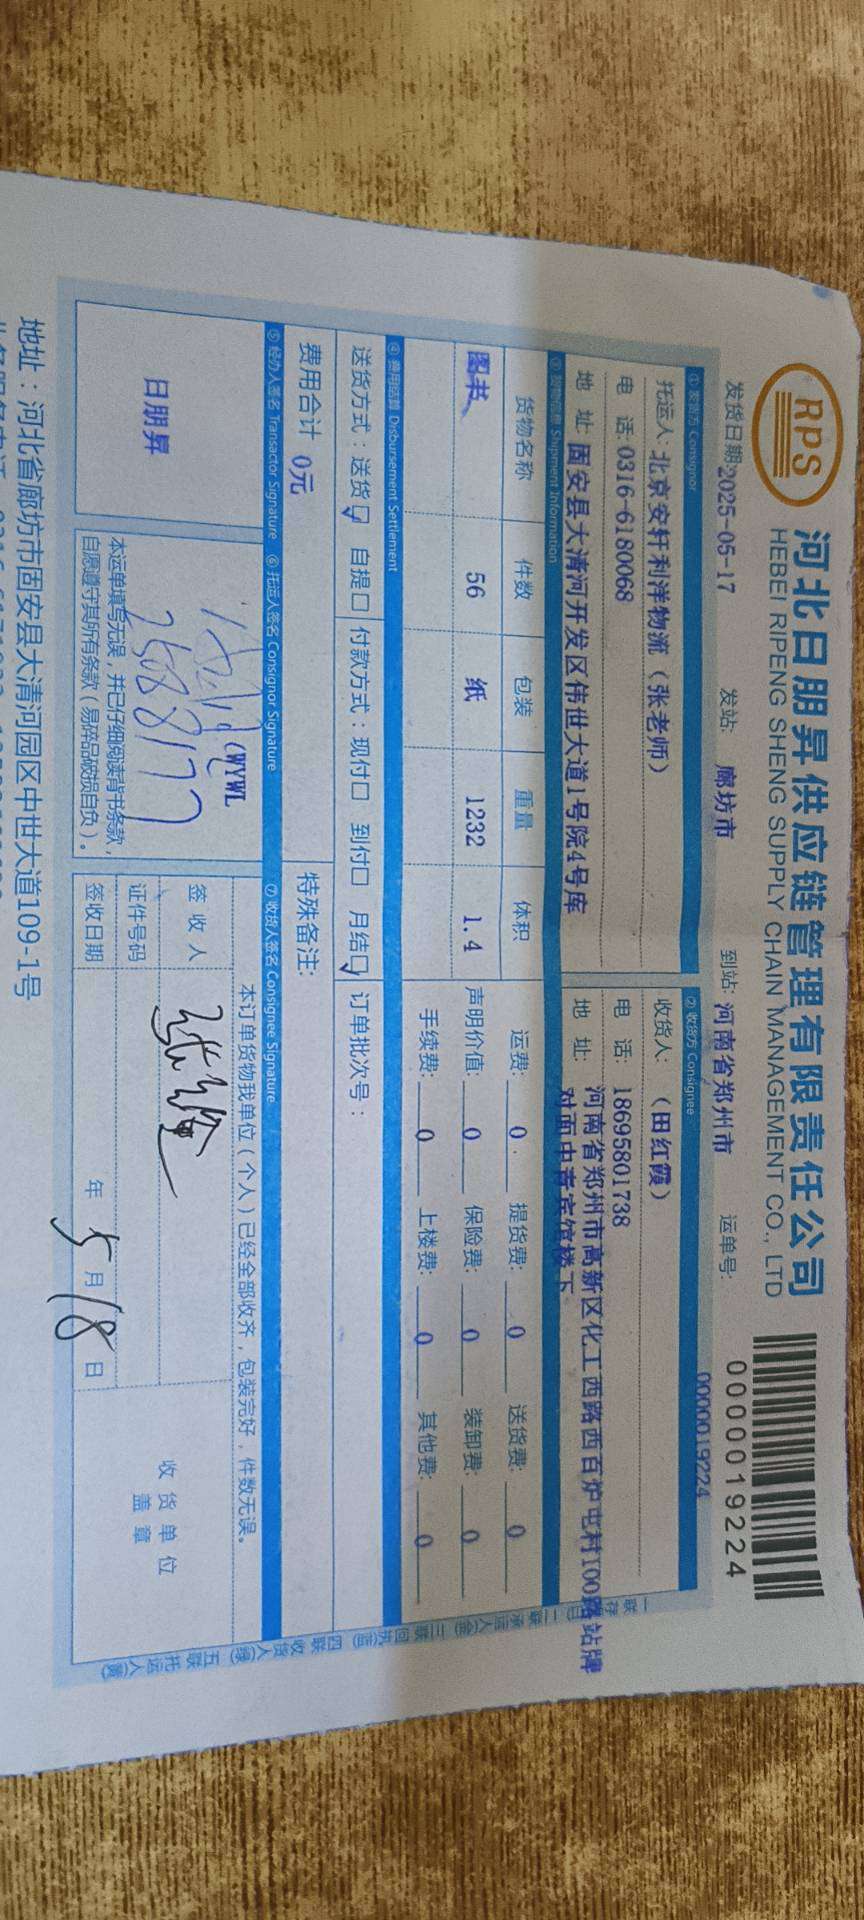 RPS
河北日朋昇供应链管理有限责任公司
HEBEI RIPENG SHENG SUPPLY CHAIN MANAGEMENT CO., LTD
0000019224
0000019224
发货日期2025-05-17 发站: 廊坊市 到站: 河南省郑州市 运单号:
① 发货方 Consignor ② 收货方 Consignee
托运人: 北京安轩利洋物流（张老师） 收货人: （田红霞）
电 话:0316-6180068 电 话: 18695801738
地 址: 固安县大清河开发区伟世大道1号院4号库 地 址: 河南省郑州市高新区化工西路西百炉屯村100路站牌
对面中青宾馆楼下
③ 货物信息 Shipment Information
货物名称 件数 包装 重量 体积 运费: 0 提货费: 0 送货费: 0
图书 56 纸 1232 1.4 声明价值: 0 保险费: 0 装卸费: 0
手续费: 0 上楼费: 0 其他费: 0
④ 费用结算 Disbursement Settlement
送货方式：送货☑ 自提□ 付款方式：现付□ 到付□ 月结☑ 订单批次号：
费用合计 0元 特殊备注:
⑤ 经办人签名 Transactor Signature ⑥ 托运人签名 Consignor Signature ⑦ 收货人签名 Consignee Signature
日朋昇
(WYWL
2588177
本运单填写无误，并已仔细阅读背书条款，
自愿遵守其所有条款（易碎品破损自负）。
本订单货物我单位（个人）已经全部收齐，包装完好，件数无误。
签 收 人
证件号码
签收日期 年 5月18日
收货单位
盖章
地址：河北省廊坊市固安县大清河园区中世大道109-1号